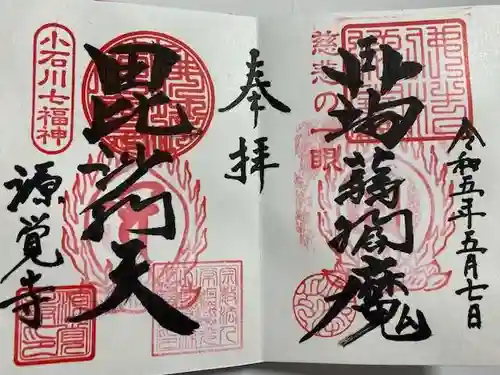 慈悲の一眼
蒟蒻閻魔
令和五年五月七日
奉拝
毘沙門天
小石川七福神
源覚寺